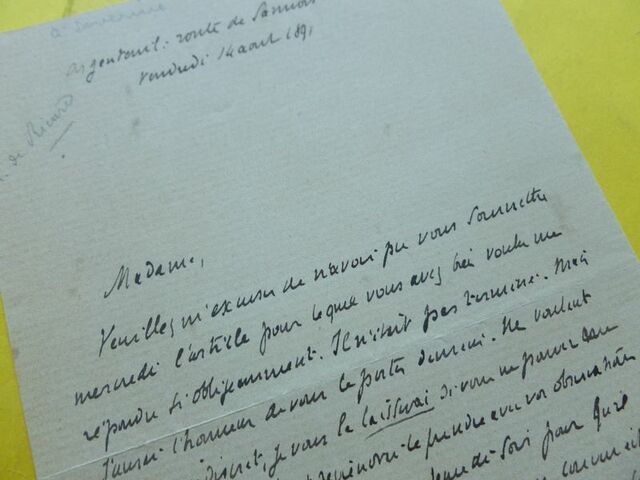 à Séverine
de Ricard
Argenteuil : route de Sannois
Vendredi 14 aout 1891
Madame,
Veuillez m'excuser de n'avoir pu vous soumettre
mercredi l'article pour lequel vous avez bien voulu me
répondre si obligeamment. Il n'était pas terminé. Mais
J'aurai l'honneur de vous le porter demain. Ne voulant
discret, je vous le laisserai si vous ne pouvez me
le prendre avec vos observations
soir pour qu'il